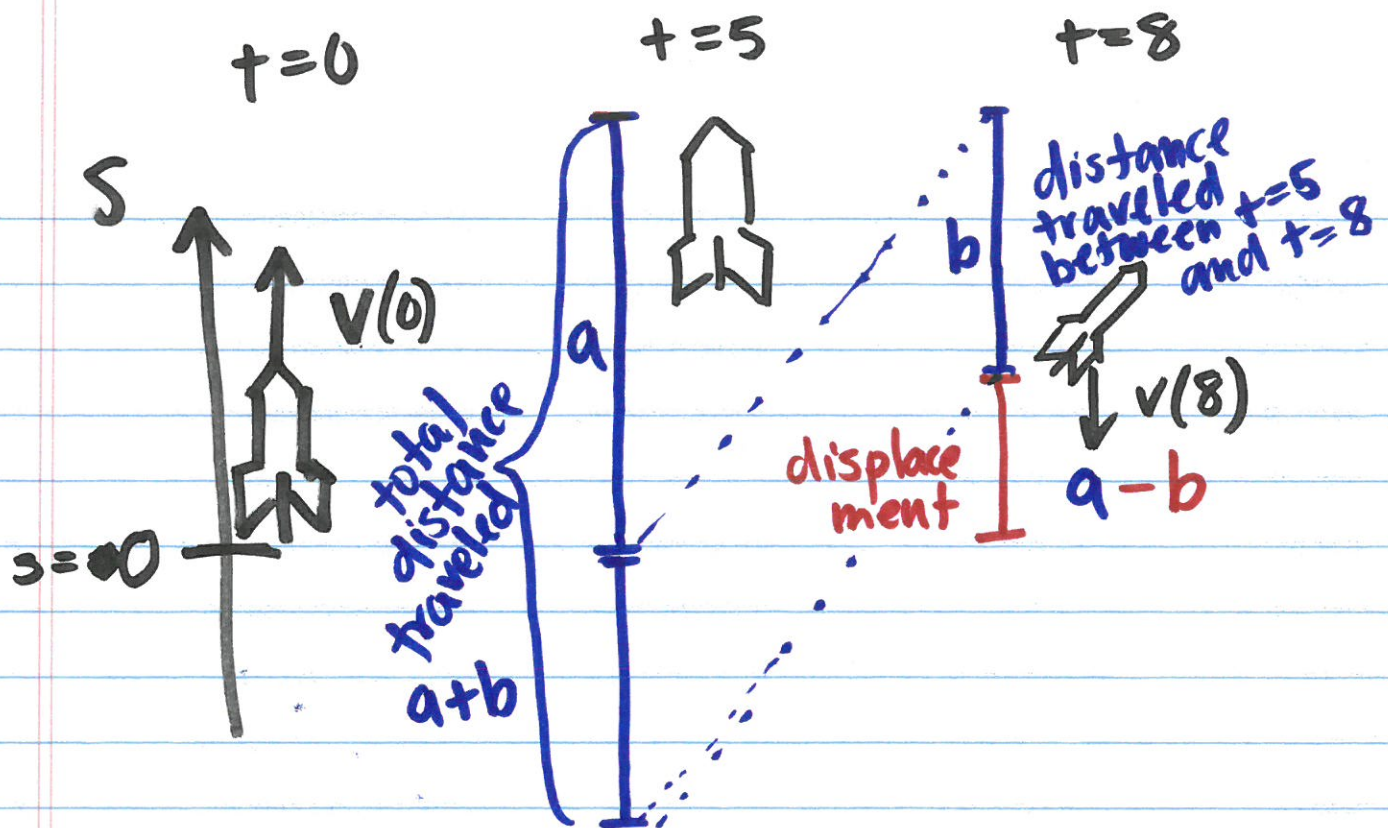 t=0
t=5
t=8
S
V(0)
s=0
a
total
distance
traveled
a+b
b
distance
traveled
between t=5
and t=8
V(8)
displace
ment
a-b